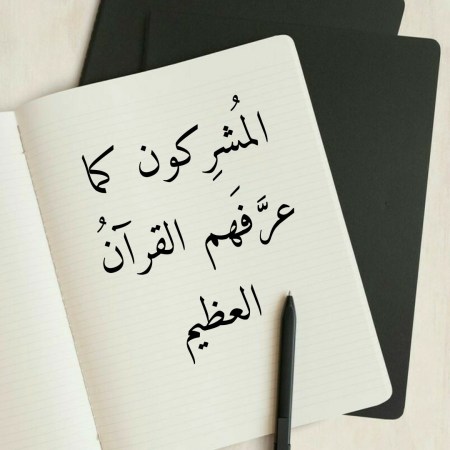 المُشرِكون كما
عرَّفَهم القرآنُ
العظيم